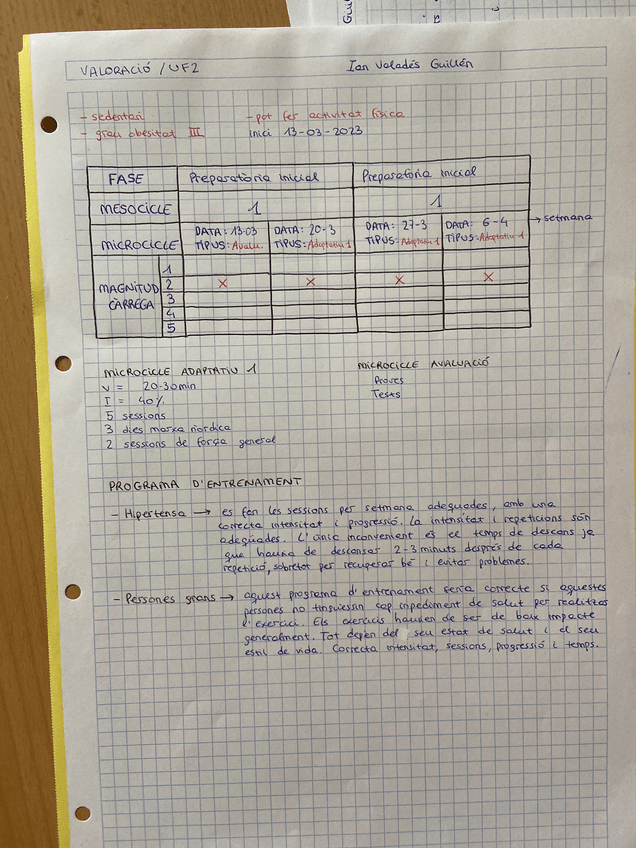 VALORACIÓ / UF2 Ian Valadés Guillén
- sedentari - pot fer activitat física
- grau obesitat III inici 13-03-2023
FASE Preparatòria inicial Preparatòria inicial
MESOCICLE 1 1
MICROCICLE DATA: 13-03 DATA: 20-3 DATA: 27-3 DATA: 6-4 → setmana
TIPUS: Avalu. TIPUS: Adaptatiu 1 TIPUS: Adaptatiu 1 TIPUS: Adaptatiu 1
MAGNITUD CÀRREGA
1
2 X X X X
3
4
5
MICROCICLE ADAPTATIU 1 MICROCICLE AVALUACIÓ
V = 20-30min Proves
I = 40% Tests
5 sessions
3 dies marxa nordica
2 sessions de força general
PROGRAMA D'ENTRENAMENT
- Hipertensa → es fan les sessions per setmana adequades, amb una
correcta intensitat i progressió. La intensitat i repeticions són
adequades. L'únic inconvenient és el temps de descans ja
que hauria de descansar 2-3 minuts després de cada
repetició, sobretot per recuperar bé i evitar problemes.
- Persones grans → aquest programa d'entrenament seria correcte si aquestes
persones no tinguessin cap impediment de salut per realitzar
l'exercici. Els exercicis haurien de ser de baix impacte
generalment. Tot depèn del seu estat de salut i el seu
estil de vida. Correcta intensitat, sessions, progressió i temps.